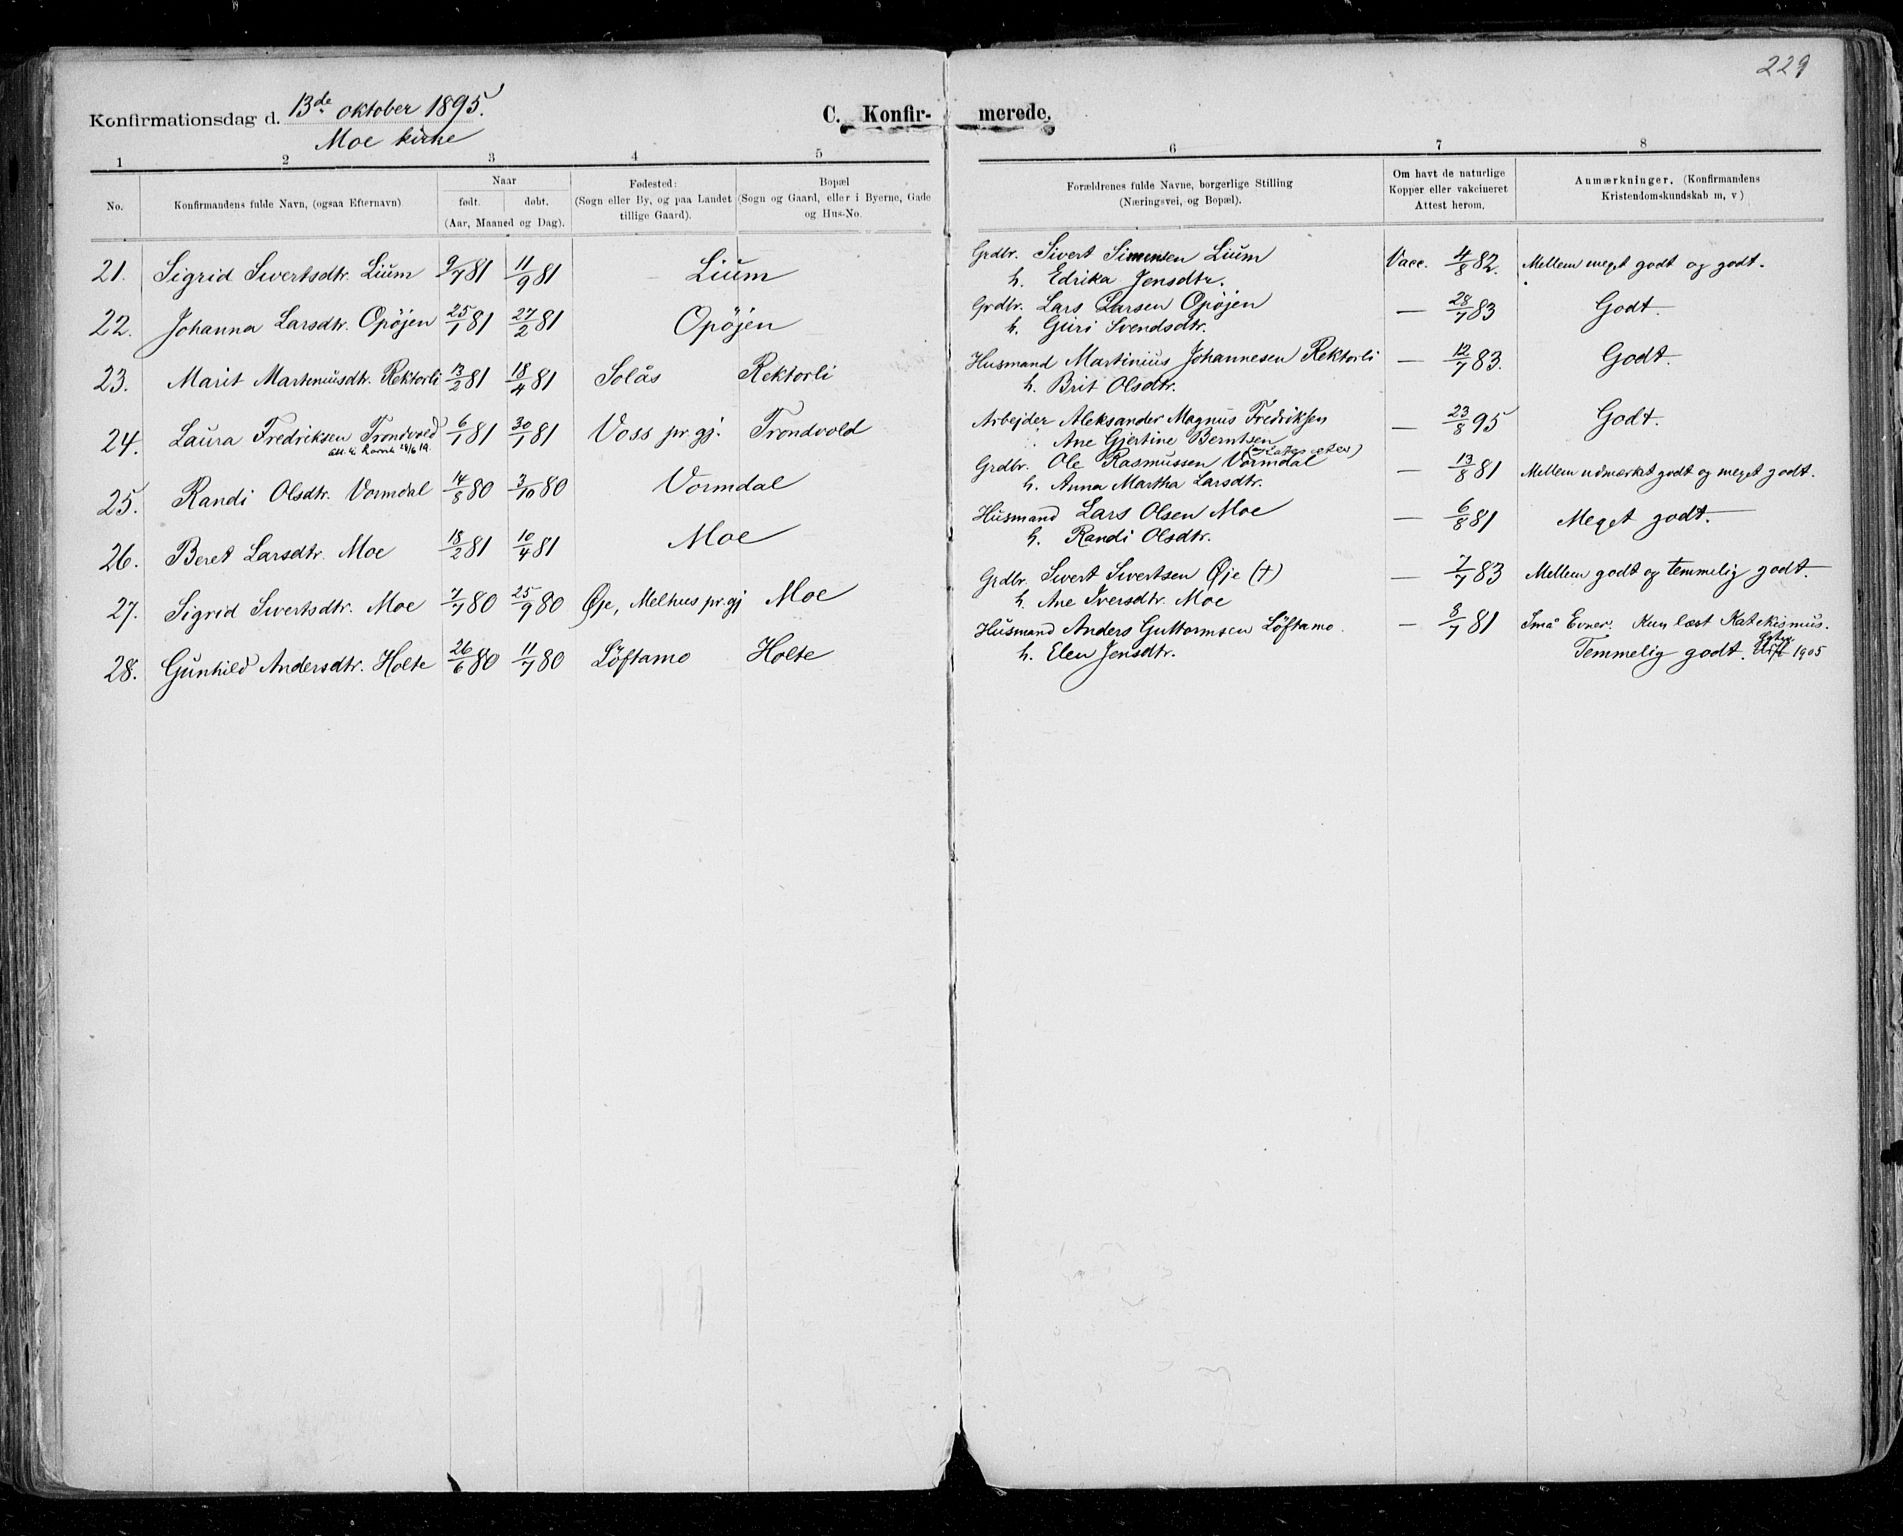 229
Konfirmationsdag d. 13de oktober 1895.
Moe kirke
C. Konfirmerede.
1 2 3 4 5 6 7 8
No. | Konfirmandens fulde Navn, (ogsaa Efternavn) | Naar født. døbt. (Aar, Maaned og Dag). | Fødested: (Sogn eller By, og paa Landet tillige Gaard). | Bopæl (Sogn og Gaard, eller i Byerne, Gade og Hus-No. | Forældrenes fulde Navne, borgerlige Stilling (Næringsvei, og Bopæl). | Om havt de naturlige Kopper eller vakcineret Attest herom. | Anmærkninger, (Konfirmandens Kristendomskundskab m, v)
21. Sigrid Sivertsdtr. Lium 9/7 81 11/9 81 Lium Grdbr. Sivert Simensen Lium Vacc. 4/8 82. Mellem meget godt og godt.
h. Edrika Jensdtr.
22. Johanna Larsdtr. Opøjen 25/1 81 27/2 81 Opøjen Grdbr. Lars Larsen Opøjen — 28/7 83 Godt.
h. Guri Svendsdtr.
23. Marit Martinusdtr. Rektorli 13/2 81 18/4 81 Solås Rektorli Husmand Martinius Johannesen Rektorli — 12/7 83. Godt.
h. Brit Olsdtr.
24. Laura Fredriksen Trondvold 6/1 81 30/1 81 Voss pr.gj. Trondvold Arbejder Aleksander Magnus Fredriksen — 23/8 95 Godt.
Ane Gjertine Berntsen
25. Randi Olsdtr. Vormdal 14/8 80 3/10 80 Vormdal Grdbr. Ole Rasmussen Vormdal — 13/8 81 Mellem udmærket godt og meget godt.
h. Anna Martha Larsdtr.
26. Beret Larsdtr. Moe 18/2 81 10/4 81 Moe Husmand Lars Olsen Moe — 6/8 81 Meget godt.
h. Randi Olsdtr.
27. Sigrid Sivertsdtr. Moe 7/7 80 25/9 80 Øje, Melhus pr.gj Moe Grdbr. Sivert Sivertsen Øje (†) — 7/7 83 Mellem godt og temmelig godt.
h. Ane Iversdtr. Moe
28. Gunhild Andersdtr. Holte 26/6 80 11/7 80 Løftamo Holte Husmand Anders Guttormsen Løftamo. — 8/7 81 Små Evner. Kun læst Katekismus.
h. Elen Jensdtr. Temmelig godt. 1905